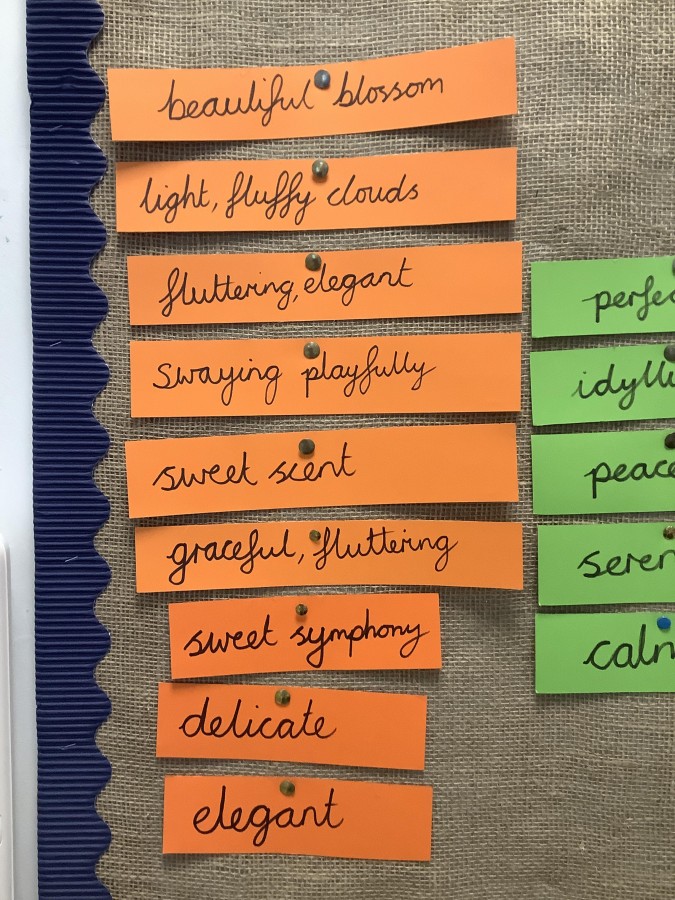 beautiful blossom
light, fluffy clouds
fluttering, elegant
swaying playfully
sweet scent
graceful, fluttering
sweet symphony
delicate
elegant
calm